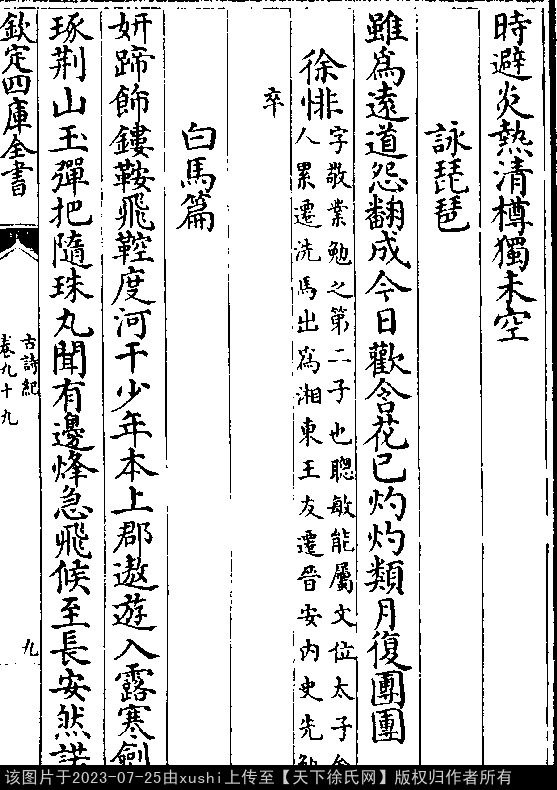 時避炎熱清樽獨未空
詠琵琶
雖為遠道怨翻成今日歡含花已灼灼類月復團團
徐悱
字敬業勉之第二子也聰敏能屬文位太子舍
人累遷洗馬出為湘東王友遷晉安內史先勉
卒
白馬篇
妍蹄飾鏤鞍飛鞚度河干少年本上郡遨遊入露寒劍
琢荆山玉彈把隋珠丸聞有邊烽急飛候至長安然諾
欽定四庫全書
古詩紀
卷九十九
九
该图片于2023-07-25由xushi上传至【天下徐氏网】版权归作者所有